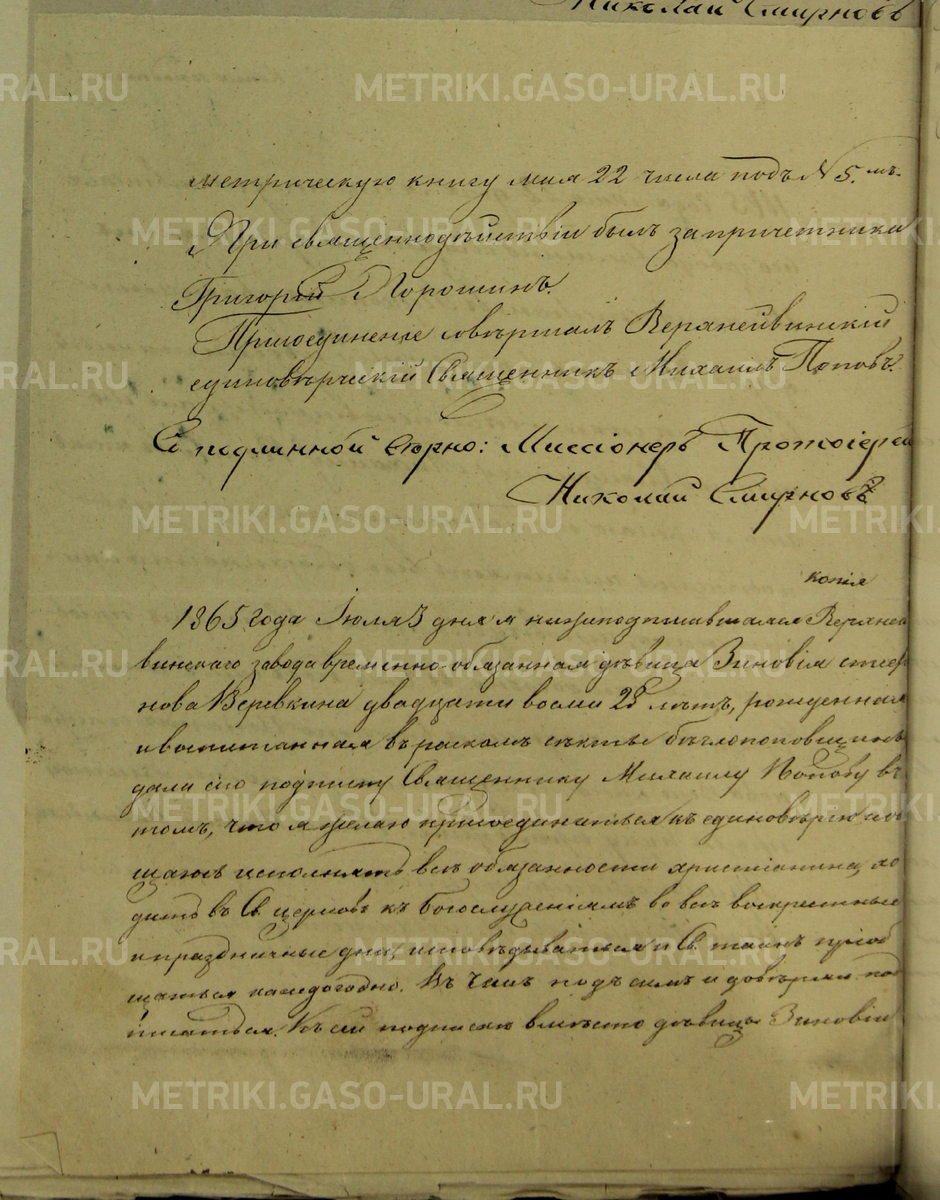 Николай Смирновъ
метрическую книгу мая 22 числа подъ N 5.мъ.
При священнодѣйствіи былъ за причетника
Григорій Порошинъ.
Присоединеніе совершалъ Верхнейвинскій
единовѣрческій Священникъ Михаилъ Поповъ.
Съ подлинной вѣрно: Миссіонеръ Протоіерей
Николай Смирновъ
копія
1865 года Іюля 3 дня я нижеподписавшаяся Верхней
винскаго завода временно-обязанная дѣвица Зиновія
нова Веревкина двадцати восьми 28 лѣтъ, рожденная
и воспитанная въ расколѣ сѣкты бѣглопоповщинской
дала сію подписку Священнику Михаилу Попову въ
томъ, что я желаю присоединиться къ единовѣрію и обѣ
щаюсь исполнять всѣ обязанности христіанина, хо
дить въ Св. церковь къ богослуженіямъ во всѣ воскресные
и праздничные дни, исповѣдываться и Св. таинъ пріоб
щаться каждогодно. Въ чемъ подъ симъ и довѣряю под
писаться. Къ сей подпискѣ вмѣсто дѣвицы Зиновіи
METRIKI.GASO-URAL.RU